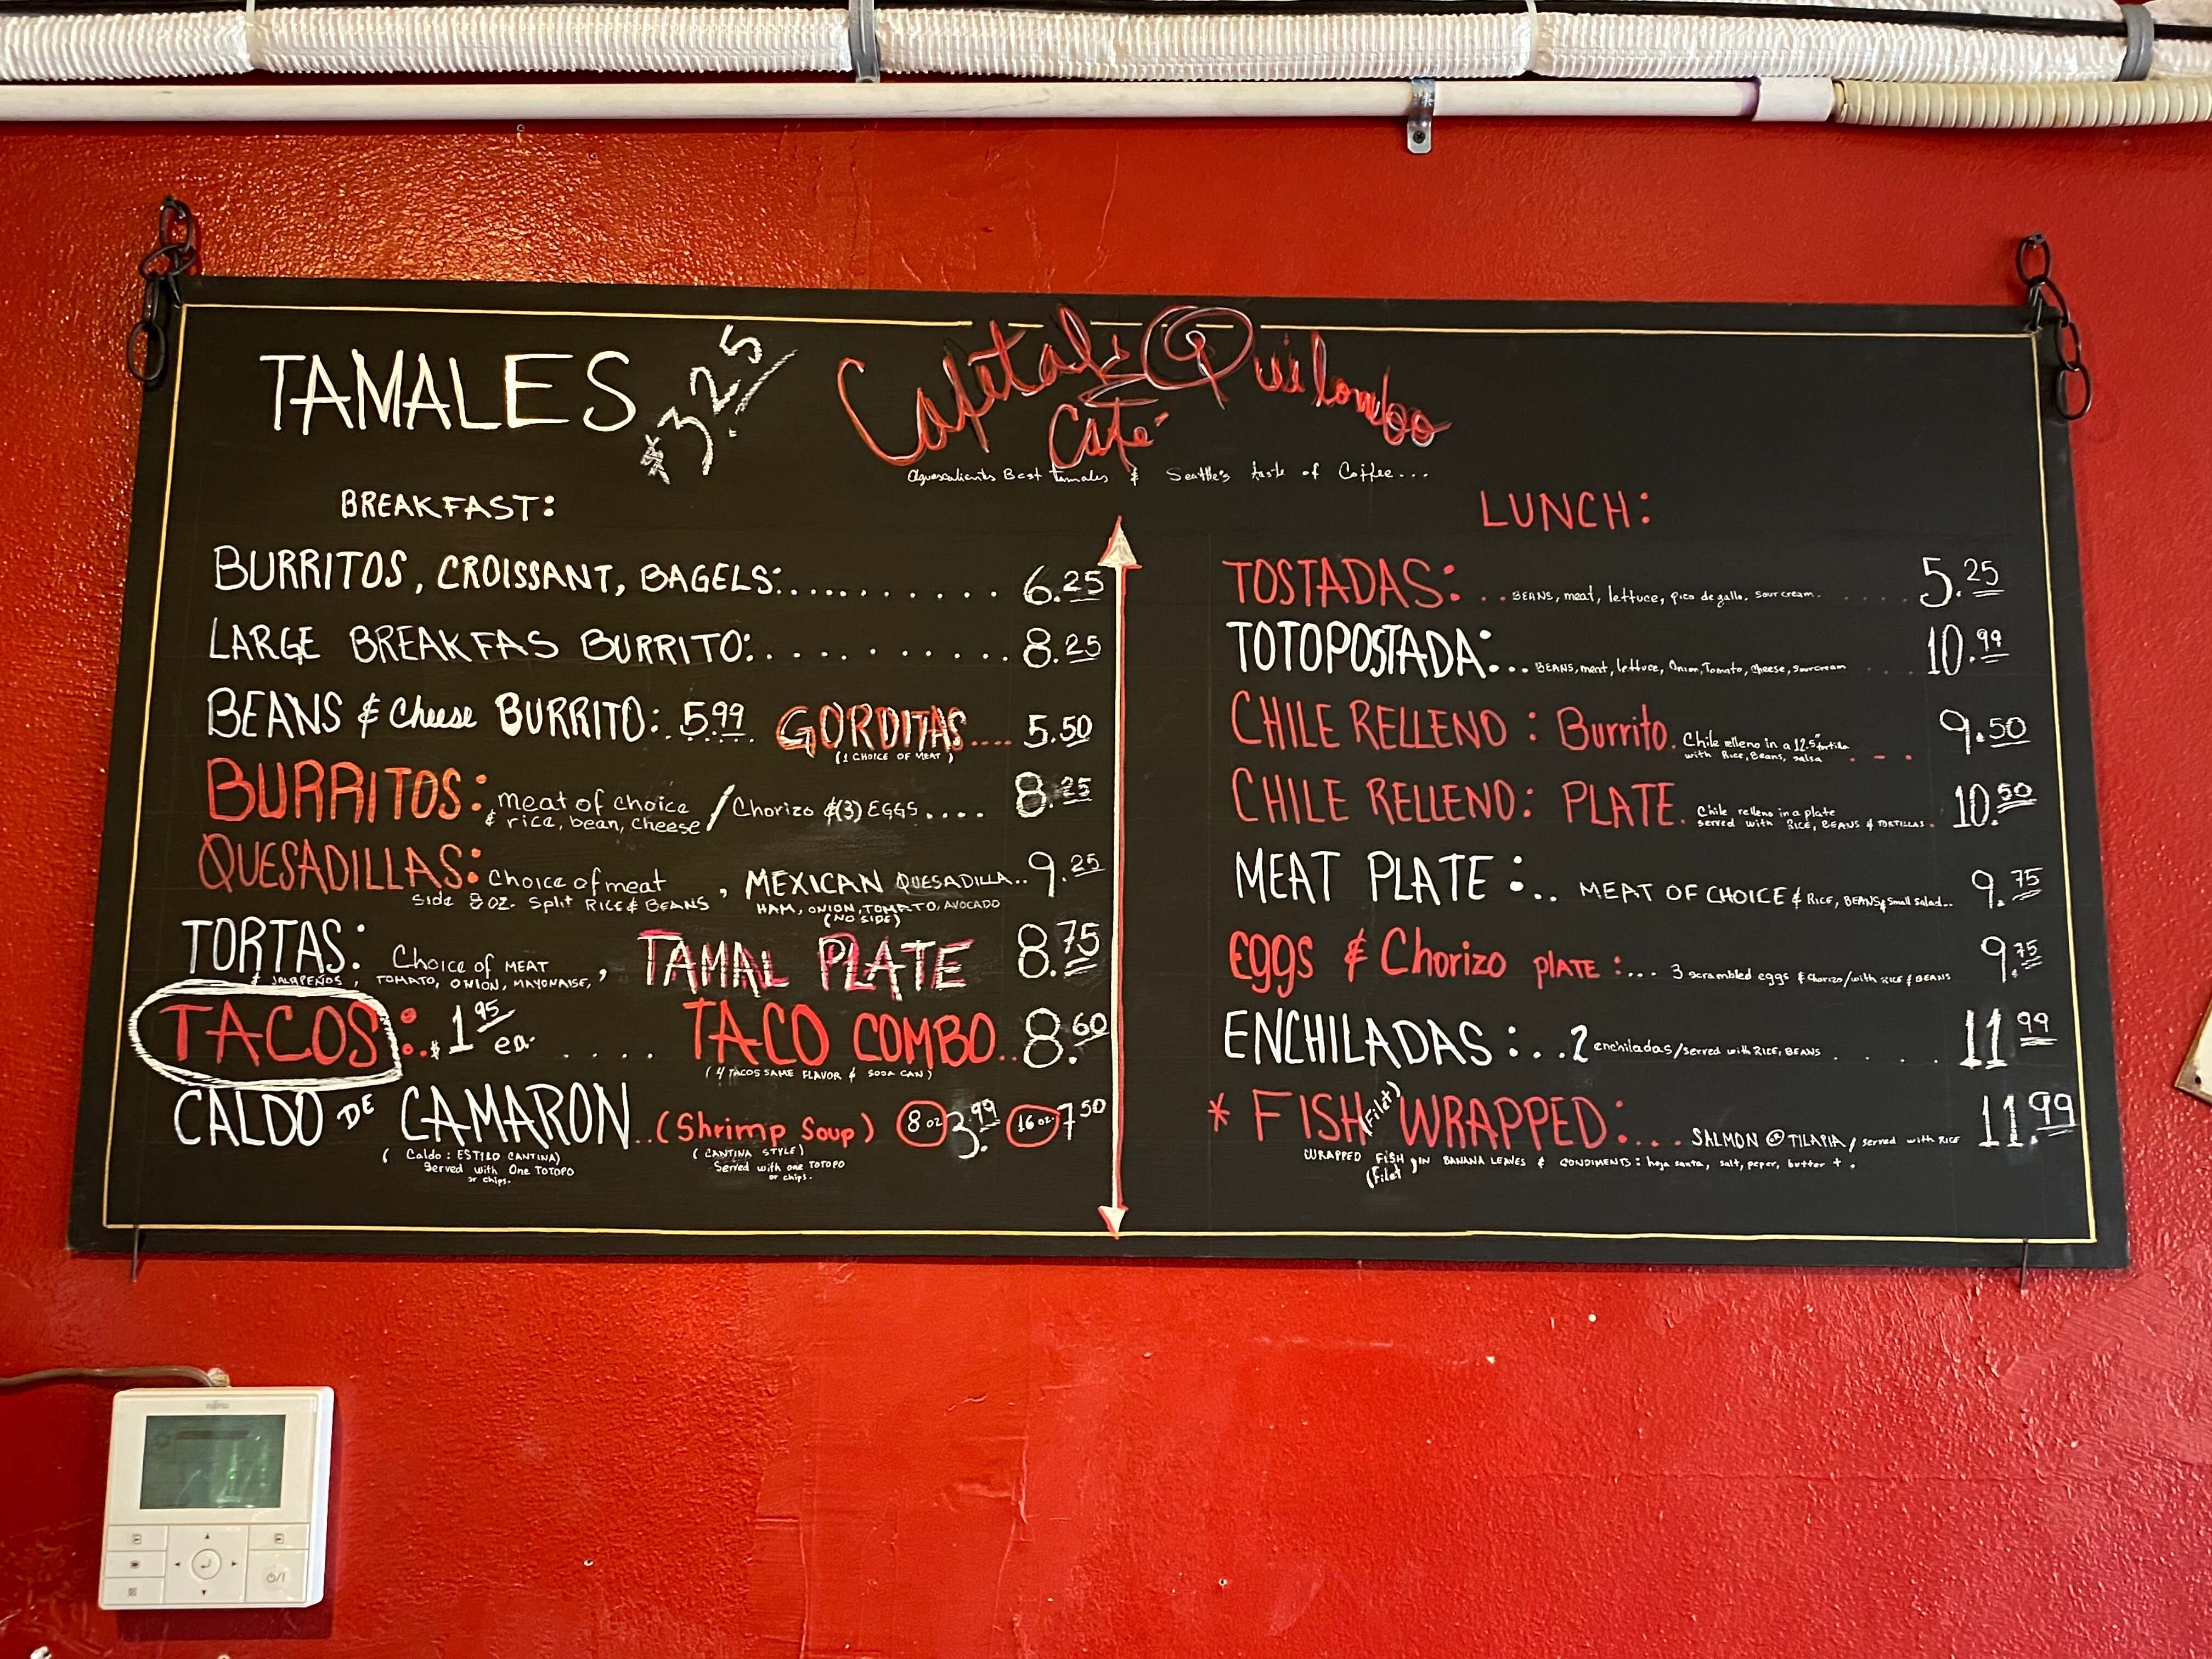 TAMALES $3.25
Cafetal Quilombo
Café
Aguascalientes Best Tamales & Seattle's taste of Coffee...
BREAKFAST:
BURRITOS, CROISSANT, BAGELS:........... 6.25
LARGE BREAKFAS BURRITO:........... 8.25
BEANS & Cheese BURRITO: 5.99 GORDITAS.... 5.50
(1 CHOICE OF MEAT)
BURRITOS: meat of choice / Chorizo &(3) EGGS.... 8.25
& rice, bean, cheese
QUESADILLAS: Choice of meat, MEXICAN QUESADILLA.. 9.25
side 8 oz. split RICE & BEANS HAM, ONION, TOMATO, AVOCADO
(NO SIDE)
TORTAS: Choice of MEAT, TAMAL PLATE 8.75
& JALAPEÑOS, TOMATO, ONION, MAYONAISE,
TACOS:.$1.95 ea. .... TACO COMBO.. 8.60
(4 TACOS SAME FLAVOR & SODA CAN)
CALDO DE CAMARON..(Shrimp Soup) 8 oz 3.99 16 oz. 7.50
(Caldo: ESTILO CANTINA) (CANTINA STYLE)
Served with One TOTOPO Served with one TOTOPO
or chips. or chips.
LUNCH:
TOSTADAS: ..BEANS, meat, lettuce, pico de gallo, sour cream..... 5.25
TOTOPOSTADA:...BEANS, meat, lettuce, Onion, Tomato, cheese, sourcream ... 10.99
CHILE RELLENO: Burrito. Chile relleno in a 12.5" tortilla ... 9.50
with Rice, Beans, salsa
CHILE RELLENO: PLATE. Chile relleno in a plate 10.50
served with RICE, BEANS & TORTILLAS.
MEAT PLATE:.. MEAT OF CHOICE & RICE, BEANS & small salad... 9.75
Eggs & Chorizo PLATE:... 3 scrambled eggs & chorizo/with RICE & BEANS 9.75
ENCHILADAS:...2 enchiladas/served with RICE, BEANS..... 11.99
* FISH (Filet) WRAPPED:.... SALMON OR TILAPIA/ served with RICE 11.99
WRAPPED FISH (Filet) IN BANANA LEAVES & CONDIMENTS: hoja santa, salt, peper, butter +.
FUJITSU